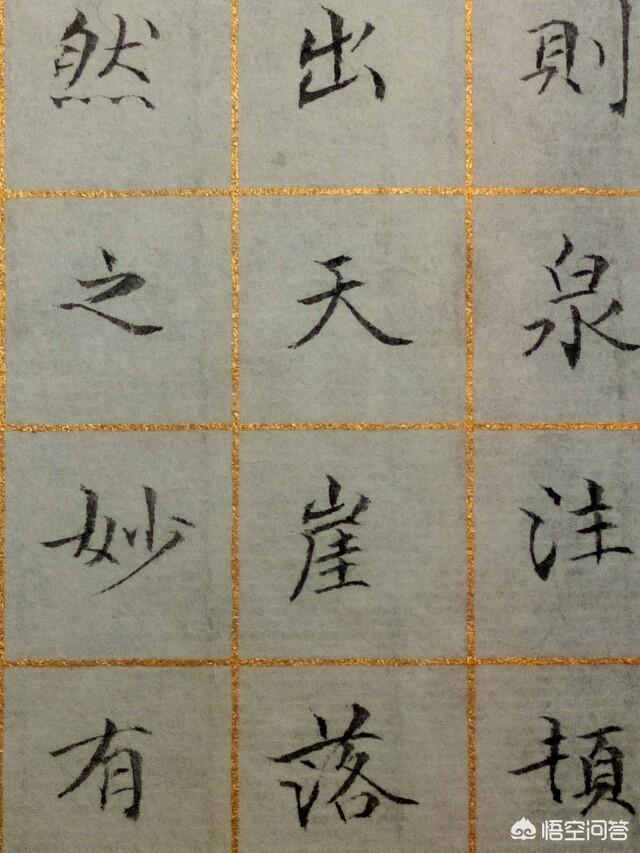 則泉注頓
出天崖落
然之妙有
悟空问答